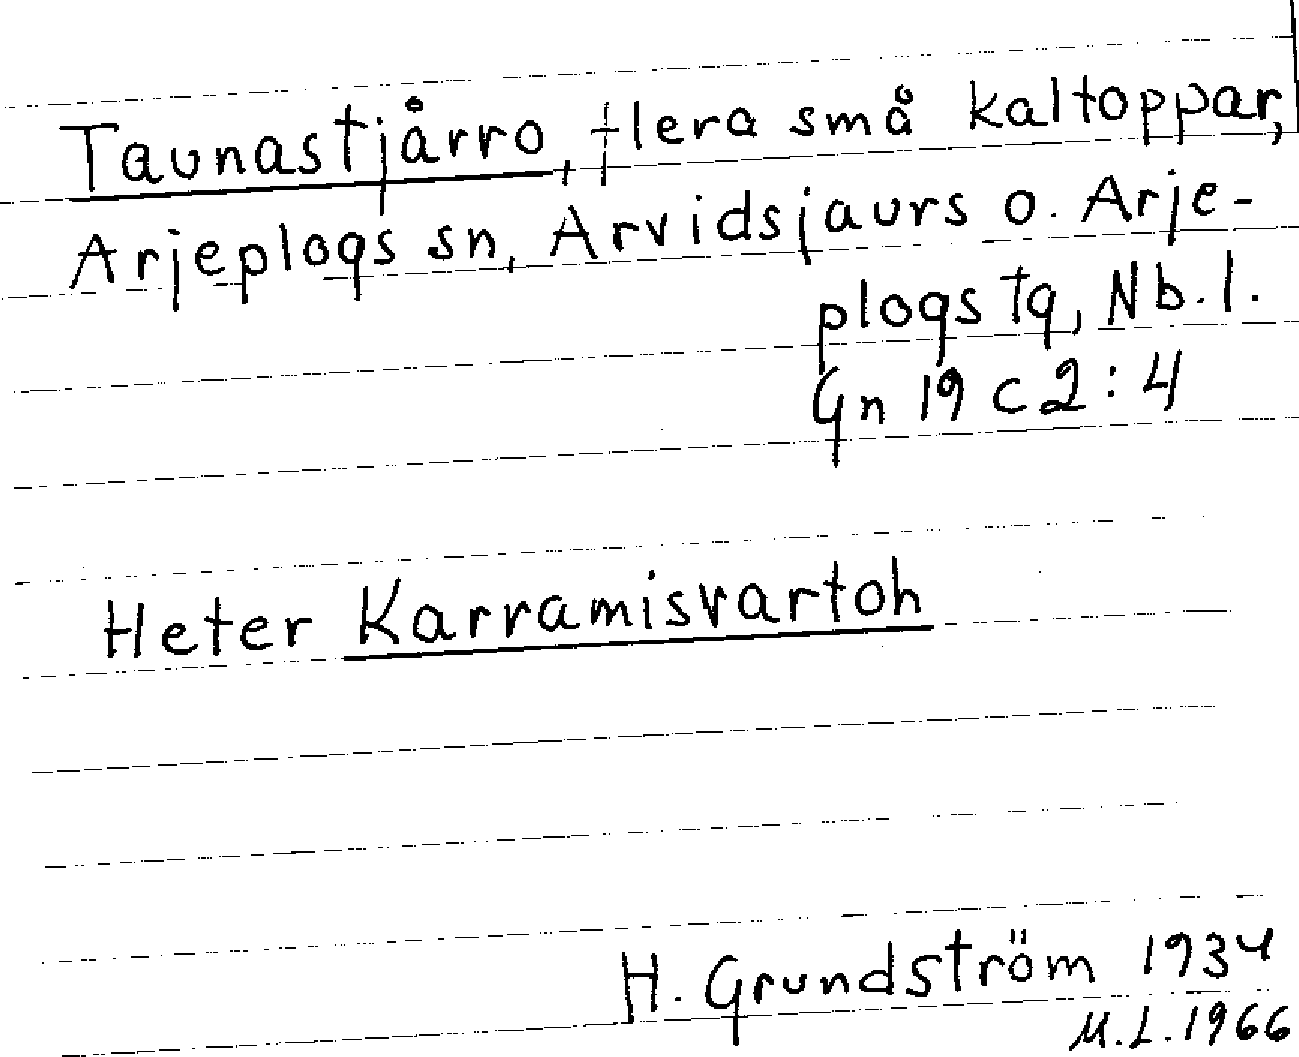 Taunastjårro, flera små kaltoppar,
Arjeplogs sn, Arvidsjaurs o. Arje-
plogs tg, Nb. l.
Gn 19 c 2:4
Heter Karramisvartoh
H. Grundström 1934
M.L. 1966